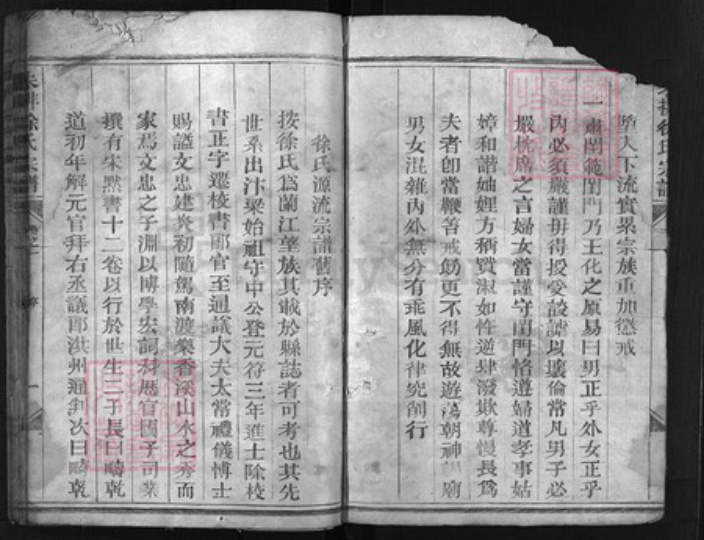 墮夫下流實累宗族重加懲戒
一肅閨範閨門乃王化之原易曰男正乎外女正乎
內必須嚴謹毋得授受設謔以壞倫常凡男子必
嚴枕席之言婦女當謹守閨門恪遵婦道孝事姑
嫜和諧妯娌方稱賢淑如性逆肆潑欺尊慢長為
夫者卽當鞭笞戒飭更不得無故遊蕩朝神謁廟
男女混雜內外無分有乖風化律究削行
徐氏源流宗譜舊序
按徐氏爲蘭江望族其載於縣誌者可考也其先
世系出汴梁始祖守中公登元符三年進士除校
書正字遷校書郎官至通議大夫太常禮儀博士
賜謚文忠建炎初隨駕南渡樂香溪山水之秀而
家焉文忠之子淵以博學宏詞科歷官國子司業
撰有宋默書十二卷以行於世生二子長曰疇乾
道初年解元官拜右丞議郎洪州通判次曰疇乾
徐氏宗譜